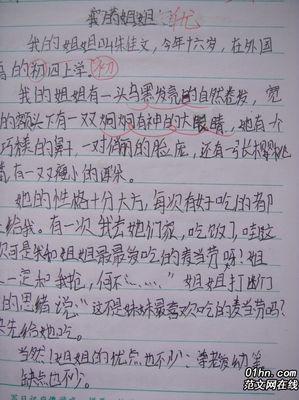 我的姐姐 优
我的姐姐叫朱佳文，今年十六岁，在外国
的初四上学。初
我的姐姐有一头乌黑发亮的自然卷发，宽
的额头下有一双炯炯有神的大眼睛，她有个
巧样的鼻，一对俏丽的脸庞，还有弓长樱桃
有一双瘦小的
她的性格十分大方，每次有好吃的都
给我。有一次我去她们家，吃饭了，哇这
可是我和姐姐最最爱吃的麦当劳呀！姐
一定和我抢，何不……”姐姐打断了
的思绪说：“这不是妹妹最喜欢吃的麦当劳吗？
先给她吃。
当然！姐姐的优点也不少：
缺点也不少。
01hn.com
范文网在线